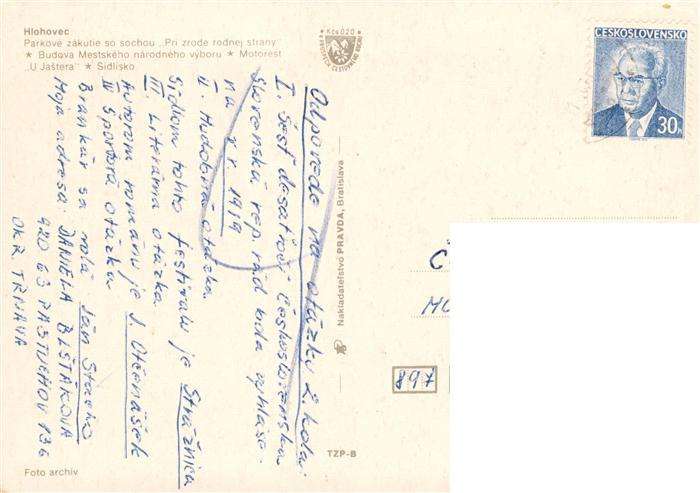 Hlohovec
Parkové zákutie so sochou „Pri zrode rodnej strany"
★ Budova Mestského národného výboru ★ Motorest
„U Jaštera" ★ Sídlisko
Kčs 0,20
ČESKOSLOVENSKO
30h
Odpovede na otázky 2. kola:
I. Šesť desaťročí Československa
Slovenská rep. rád bola vyhláse-
ná v r. 1919
II. Hudobná otázka.
Sídlom tohto festivalu je Strážnica
III. Literárna otázka
Autorom románu je J. Otčenášek
IV Športová otázka
Brankár sa volá Ján Stacho
Moja adresa: DANIELA BLŠŤÁKOVÁ
920 63 PASTUCHOV 136
OKR. TRNAVA
Nakladateľstvo PRAVDA, Bratislava
Č
MO
897
TZP-B
Foto archív